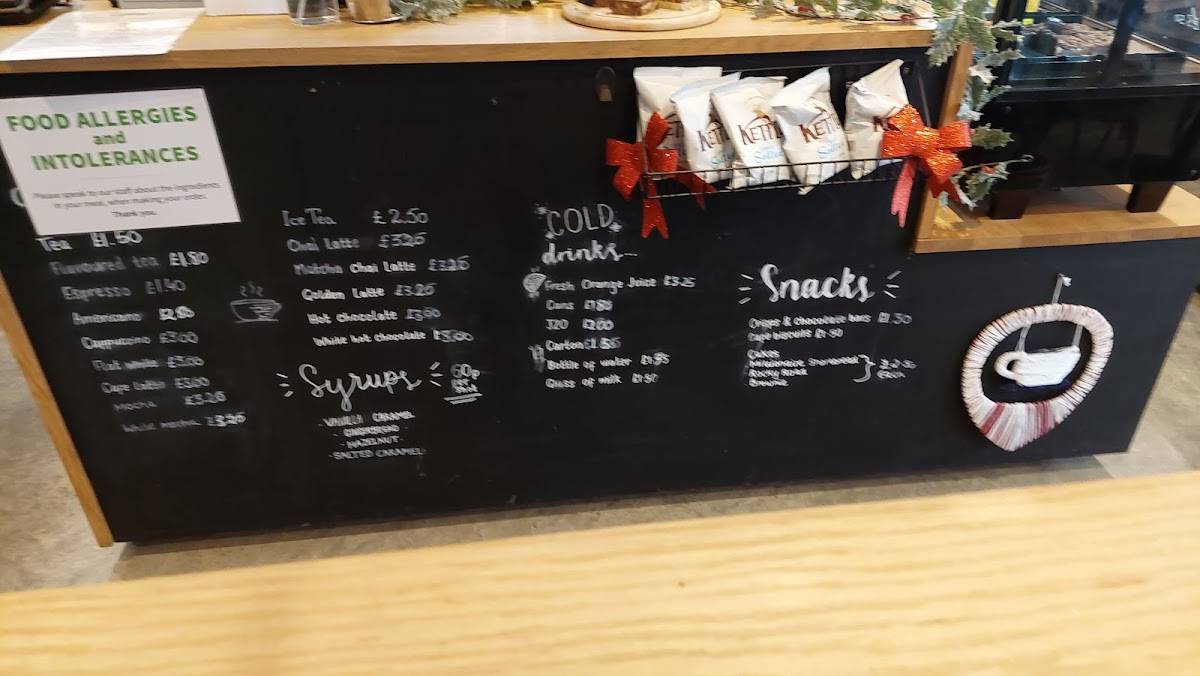 FOOD ALLERGIES
and
INTOLERANCES
Please speak to our staff about the ingredients
in your meal, when making your order.
Thank you.
Tea £1.50
Flavoured tea £1.80
Espresso £1.40
Americano £2.80
Cappuccino £3.00
Flat white £3.00
Cafe latte £3.00
Mocha £3.25
White mocha £3.25
Ice Tea £2.50
Chai Latte £3.25
Matcha Chai Latte £3.25
Golden Latte £3.25
Hot chocolate £3.00
White hot chocolate £3.00
Syrups 60p
per
shot
- VANILLA CARAMEL
- GINGERBREAD
- HAZELNUT -
- SALTED CARAMEL
COLD
drinks
Fresh Orange Juice £3.25
Cans £1.80
J20 £2.00
Carton
Bottle of water
Glass of milk £1.50
Snacks
Crisps & chocolate bars £1.30
Cafe biscuits £1.50
Cakes
Millionaire Shortbread
Rocky Road
Brownie
Each
KETTLE
KETTLE
KETTLE